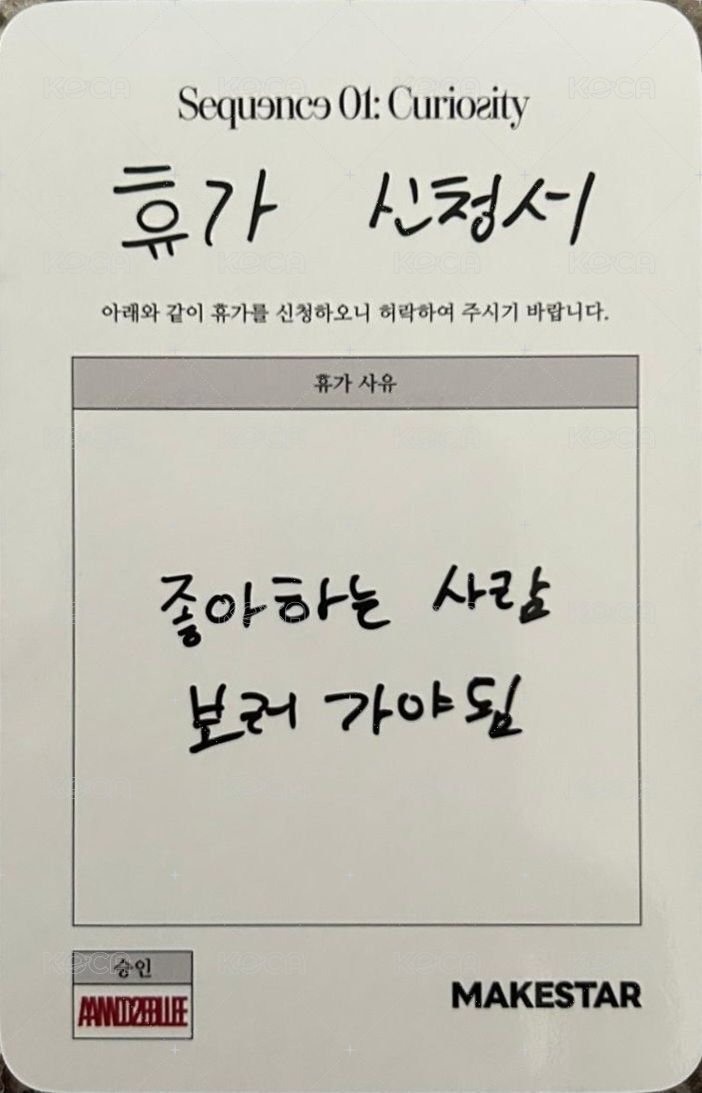 Sequence 01: Curiosity
휴가 신청서
아래와 같이 휴가를 신청하오니 허락하여 주시기 바랍니다.
휴가 사유
좋아하는 사람
보러 가야됨
승인
AND2BLE
MAKESTAR
KOCA